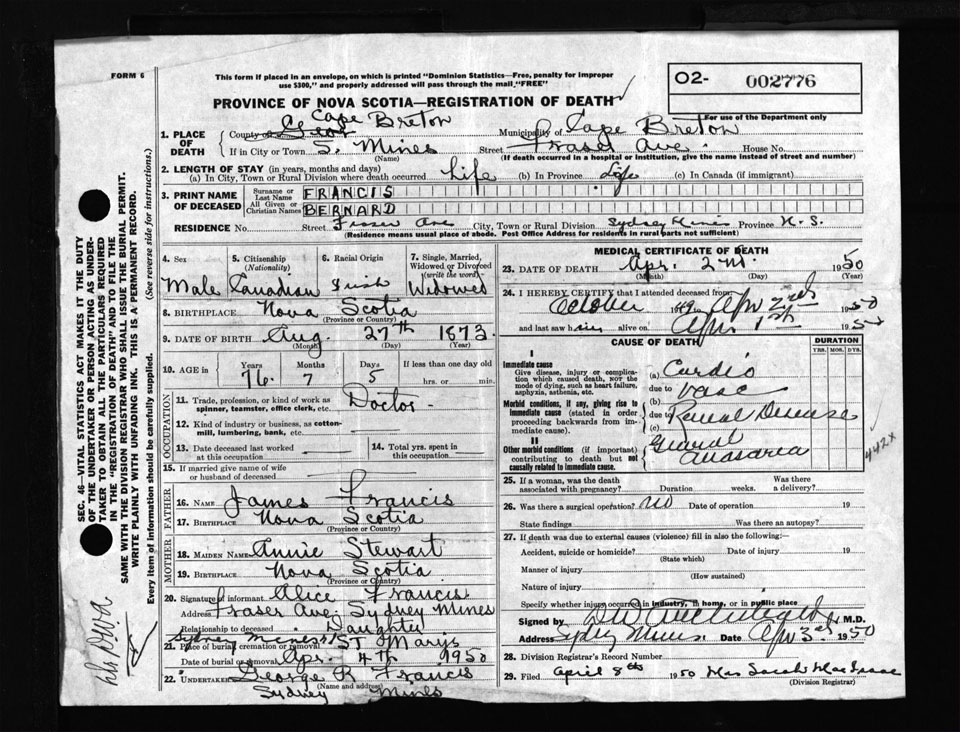 FORM 6
This form if placed in an envelope, on which is printed "Dominion Statistics—Free, penalty for improper
use $300," and properly addressed will pass through the mail "FREE"
O2- 002776
For use of the Department only
PROVINCE OF NOVA SCOTIA—REGISTRATION OF DEATH
1. PLACE OF DEATH
County of Cape Breton
Municipality of Cape Breton
If in City or Town S. Mines Street Fraser Ave. House No.
(Name) (If death occurred in a hospital or institution, give the name instead of street and number)
2. LENGTH OF STAY (in years, months and days)
(a) In City, Town or Rural Division where death occurred Life (b) In Province Life (c) In Canada (if immigrant)
3. PRINT NAME OF DECEASED
Surname or Last Name FRANCIS
All Given or Christian Names BERNARD
RESIDENCE No. Street Fraser Ave City, Town or Rural Division Sydney Mines Province N. S.
(Residence means usual place of abode. Post Office Address for residents in rural parts not sufficient)
4. Sex Male
5. Citizenship (Nationality) Canadian
6. Racial Origin Irish
7. Single, Married, Widowed or Divorced (write the word) Widowed
8. BIRTHPLACE Nova Scotia
(Province or Country)
9. DATE OF BIRTH Aug. 27th 1873
(Month) (Day) (Year)
10. AGE in Years 76 Months 7 Days 5 If less than one day hrs. or min.
OCCUPATION
11. Trade, profession, or kind of work as spinner, teamster, office clerk, etc. Doctor
12. Kind of industry or business, as cotton-mill, lumbering, bank, etc.
13. Date deceased last worked at this occupation
14. Total yrs. spent in this occupation
15. If married give name of wife or husband of deceased
FATHER
16. NAME James Francis
17. BIRTHPLACE Nova Scotia
(Province or Country)
MOTHER
18. MAIDEN NAME Annie Stewart
19. BIRTHPLACE Nova Scotia
(Province or Country)
20. Signature of informant Alice Francis
Address Fraser Ave. Sydney Mines
Relationship to deceased Daughter
Sydney Mines St Marys
21. Place of burial cremation or removal
Date of burial or removal Apr. 4th 1950
22. UNDERTAKER George R Francis
(Name and address)
Sydney Mines
MEDICAL CERTIFICATE OF DEATH
23. DATE OF DEATH Apr. 2nd 1950
(Month) (Day) (Year)
24. I HEREBY CERTIFY that I attended deceased from
October 1949 Apr 2nd 1950
and last saw him alive on Apr 1st 1950
CAUSE OF DEATH
DURATION
YRS. MOS. DYS.
I
Immediate cause
Give disease, injury or complication which caused death, NOT the mode of dying, such as heart failure, asphyxia, asthenia, etc.
(a) Cardio
due to
Morbid conditions, if any, giving rise to immediate cause (stated in order proceeding backwards from immediate cause).
(b) vasc
due to Renal Disease
(c)
II
Other morbid conditions (if important) contributing to death but not causally related to immediate cause.
General Anasarca
442X
25. If a woman, was the death associated with pregnancy? Duration weeks. Was there a delivery?
26. Was there a surgical operation? no Date of operation 19
State findings Was there an autopsy?
27. If death was due to external causes (violence) fill in also the following:—
Accident, suicide or homicide? Date of injury 19
(State which)
Manner of injury
(How sustained)
Nature of injury
Specify whether injury occurred in industry, in home, or in public place
Signed by M.D.
Address Sydney Mines. Date Apr 3rd 1950
28. Division Registrar's Record Number
29. Filed April 8th 1950 Mrs Sarah MacIsaac
(Division Registrar)
SEC. 46 VITAL STATISTICS ACT MAKES IT THE DUTY
OF THE UNDERTAKER OR PERSON ACTING AS UNDER-
TAKER TO OBTAIN ALL THE PARTICULARS REQUIRED
IN THE "REGISTRATION OF DEATH" AND TO FILE THE
SAME WITH THE DIVISION REGISTRAR WHO SHALL ISSUE THE BURIAL PERMIT.
WRITE PLAINLY WITH UNFADING INK. THIS IS A PERMANENT RECORD.
Every item of information should be carefully supplied. (See reverse side for instructions.)